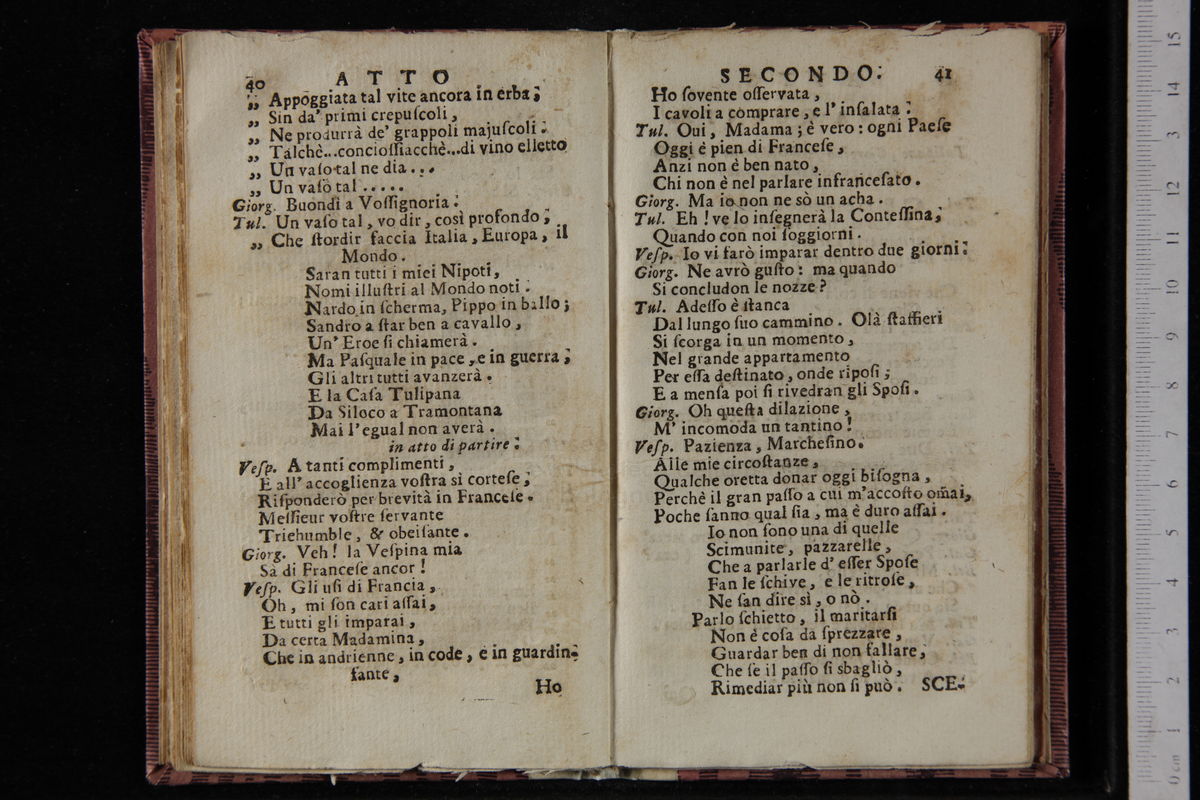 40 ATTO
„ Appoggiata tal vite ancora in erba;
„ Sin da' primi crepuſcoli,
„ Ne produrrà de' grappoli majuſcoli.
„ Talchè...concioſſiacchè...di vino elletto
„ Un vaſo tal ne dia...
„ Un vaſo tal.....
Giorg. Buondì a Voſſignoria.
Tul. Un vaſo tal, vo dir, così profondo;
„ Che ſtordir faccia Italia, Europa, il
Mondo.
Saran tutti i miei Nipoti,
Nomi illuſtri al Mondo noti.
Nardo in ſcherma, Pippo in ballo;
Sandro a ſtar ben a cavallo,
Un' Eroe ſi chiamerà.
Ma Paſquale in pace, e in guerra;
Gli altri tutti avanzerà.
E la Caſa Tulipana
Da Siloco a Tramontana
Mai l'egual non averà.
in atto di partire.
Veſp. A tanti complimenti,
E all' accoglienza voſtra sì corteſe;
Riſponderò per brevità in Franceſe.
Meſſieur voſtre ſervante
Triehumble, & obeiſante.
Giorg. Veh! la Veſpina mia
Sà di Franceſe ancor!
Veſp. Gli uſi di Francia,
Oh, mi ſon cari aſſai,
E tutti gli imparai,
Da certa Madamina,
Che in andrienne, in code, e in guardin-
fante,
Ho
SECONDO. 41
Ho ſovente oſſervata,
I cavoli a comprare, e l' inſalata.
Tul. Oui, Madama; è vero: ogni Paeſe
Oggi è pien di Franceſe,
Anzi non è ben nato,
Chi non è nel parlare infranceſato.
Giorg. Ma io non ne sò un acha.
Tul. Eh! ve lo inſegnerà la Conteſſina;
Quando con noi ſoggiorni.
Veſp. Io vi farò imparar dentro due giorni.
Giorg. Ne avrò guſto: ma quando
Si concludon le nozze?
Tul. Adeſſo è ſtanca
Dal lungo ſuo cammino. Olà ſtaffieri
Si ſcorga in un momento,
Nel grande appartamento
Per eſſa deſtinato, onde ripoſi;
E a menſa poi ſi rivedran gli Spoſi.
Giorg. Oh queſta dilazione,
M' incomoda un tantino!
Veſp. Pazienza, Marcheſino.
Alle mie circoſtanze,
Qualche oretta donar oggi biſogna,
Perchè il gran paſſo a cui m'accoſto omai,
Poche ſanno qual ſia, ma è duro aſſai.
Io non ſono una di quelle
Scimunite, pazzarelle,
Che a parlarle d' eſſer Spoſe
Fan le ſchive, e le ritroſe,
Ne ſan dire sì, o nò.
Parlo ſchietto, il maritarſi
Non è coſa da ſprezzare,
Guardar ben di non fallare,
Che ſe il paſſo ſi sbagliò,
Rimediar più non ſi può. SCE-
0 cm 1 2 3 4 5 6 7 8 9 10 11 12 13 14 15